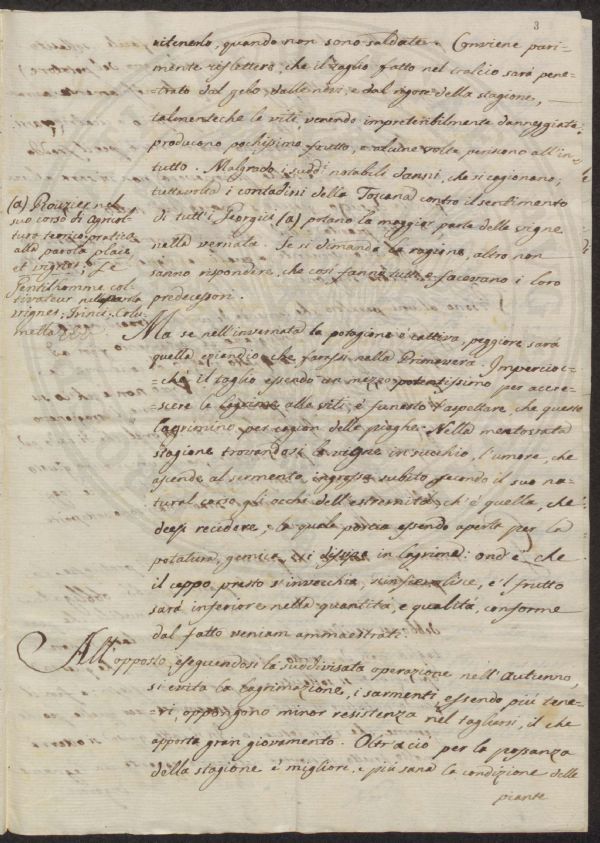 3
ritenerlo, quando non sono saldate. Conviene pari-
mente riflettere, che il taglio fatto nel tralcio sarà pene-
trato dal gelo, dalle nevi, e dal rigore della stagione,
talmenteche la vite, venendo impreteribilmente danneggiata
producono pochissimo frutto, e alcune volte periscono all'in-
tutto. Malgrado i sudd.i notabili danni, che si cagionano,
tuttavolta i contadini della Toscana contro il sentimento
di tutt'i Georgici (a) potano la maggior parte delle vigne
nella vernata. Se si dimanda la ragione, altro non
sanno rispondere, che così fanno tutti e facevano i loro
predecessori.
(a) Rouzier nel
suo corso di Agricol-
tura teorico-pratica
alla parola plaie
et vignes; Le
Gentilhomme cul-
tivateur nella parola
vignes; Colu-
mella
Ma se nell'invernata la potagione è cattiva, peggiore sarà
quella eziandio che farassi nella Primavera. Impercioc-
chè il taglio essendo un mezzo potentissimo per accre-
scere le lagrime alle viti, è funesto l'aspettare che queste
lagrimino per cagion delle piaghe. Nella mentovata
stagione trovandosi la vigna in succhio, l'umore, che
ascende al sermento, ingrossa subito secondo il suo na-
tural corso gli occhi dell'estremità, ch'è quella, che
deesi recidere; la quale poscia essendo aperta per la
potatura, gemica, e si in lagrime: ond'è che
il ceppo presto s'invecchia, e'l frutto
sarà inferiore nella quantità, e qualità, conforme
dal fatto veniam ammaestrati.
All'opposto, eseguendosi la suddivisata operazione nell'Autunno,
si evita la lagrimazione, i sarmenti essendo più tene-
ri, oppongono minor resistenza nel tagliarsi, il che
apporta gran giovamento. Oltracciò per la possanza
della stagione è migliore, e più sana la condizione delle
piante